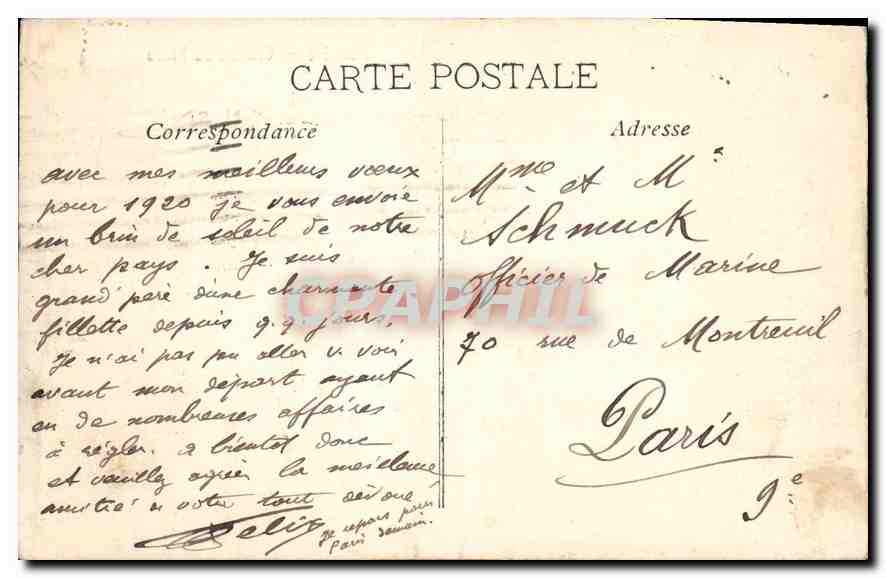 CARTE POSTALE
Correspondance
avec mes meilleurs vœux
pour 1920 je vous envoie
un brin de soleil de notre
cher pays. Je suis
grand'père d'une charmante
fillette depuis q.q. jours.
Je n'ai pas pu aller v. voir
avant mon départ ayant
eu de nombreuses affaires
à régler. à bientôt donc
et veuillez agréer la meilleure
amitié de votre tout dévoué
Félix
je repars pour
Paris demain.
Adresse
Mme et Mr
Schmuck
officier de Marine
70 rue de Montreuil
Paris
9e
CPAPHIL